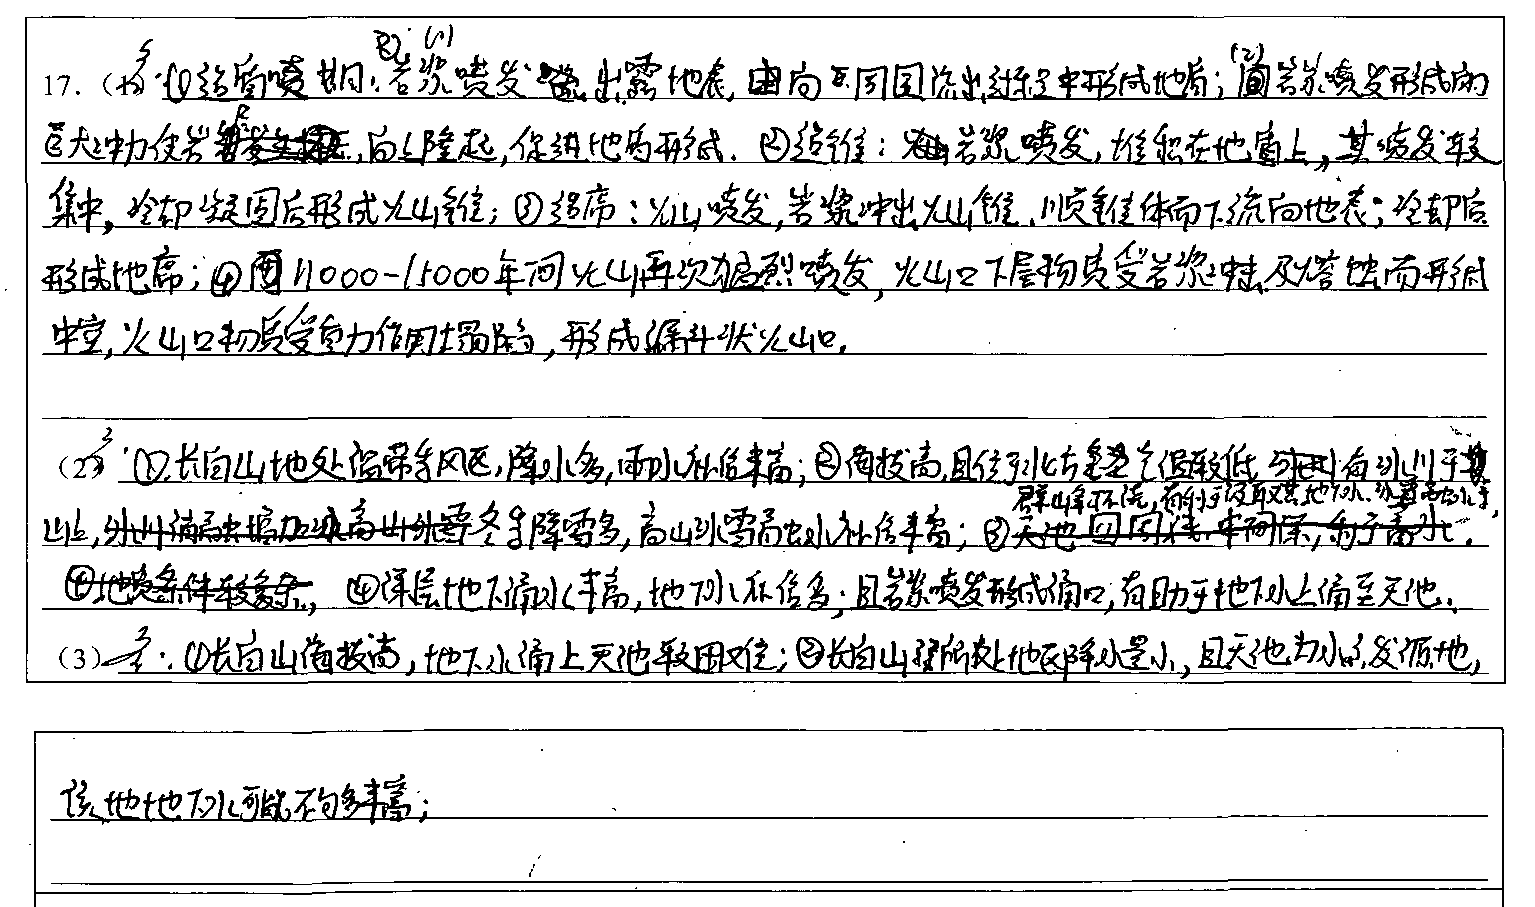 17. (1) ①造盾喷期:岩浆喷发出露地表,由向四周流出过程中形成地盾;岩浆喷发形成的
巨大冲力使岩,向上隆起,促进地盾形成.②造锥:岩浆喷发,堆积在地盾上,其喷发较
集中,冷却凝固后形成火山锥;③造席:火山喷发,岩浆冲出火山锥、顺锥体而下流向地表;冷却后
形成地席;④11000-15000年间火山再次强烈喷发,火山口下层物质受岩浆冲击及熔蚀而形成
中空,火山口物质受重力作用塌陷,形成漏斗状火山口.
(2) ①.长白山地处温带季风区,降水多,雨水补给丰富;②海拔高,且位于北方气温较低,有冰川于
群山峰环绕,有利于汲取其地下水、
山上,冬季降雪多,高山冰雪融水补给丰富;③天池四周浅,中间深,利于蓄水.
④深层地下涌水丰富,地下水补给多;且岩浆喷发形成涌口,有助于地下水上涌至天池.
(3) ①长白山海拔高,地下水涌上天池较困难;②长白山所处地区降水量小,且天池为水的发源地,
该地地下水可能不够丰富;